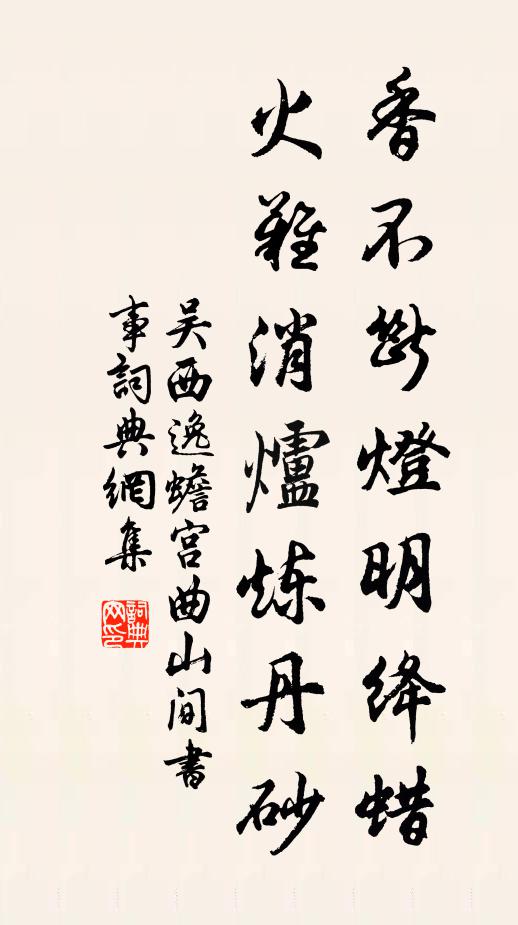 香不断燈明绛蜡
火難消爐炼丹砂
吴西逸蟾宫曲山间書
事詞典網集
詞典网印